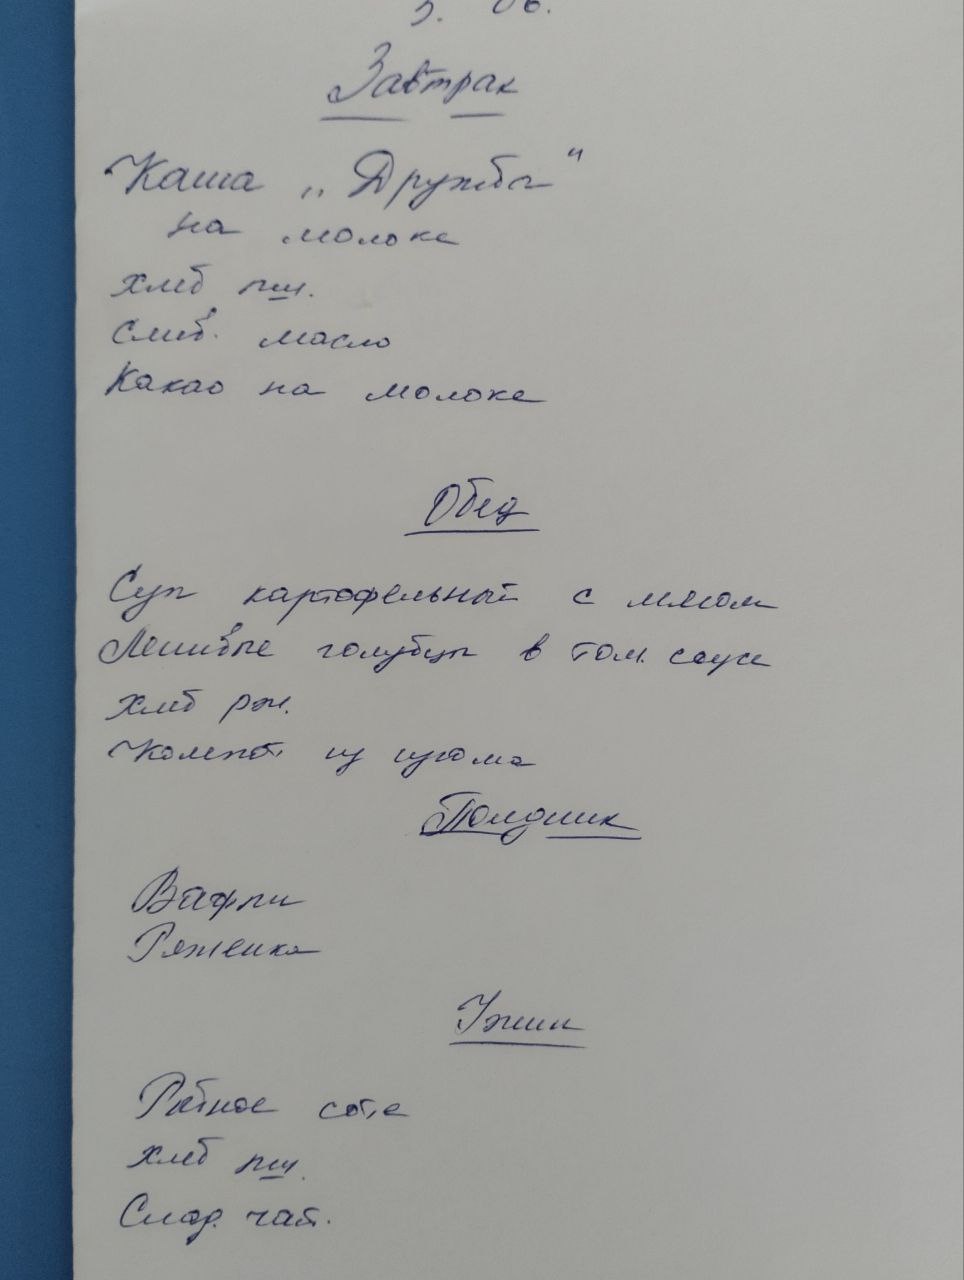 Завтрак
Каша „Дружба"
на молоке
Хлеб пш.
Слив. масло
Какао на молоке
Обед
Суп картофельный с мясом
Ленивые голубцы в том. соусе
Хлеб рж.
Компот из изюма
Полдник
Вафли
Ряженка
Ужин
Рыбное соте
Хлеб пш.
Слад. чай.